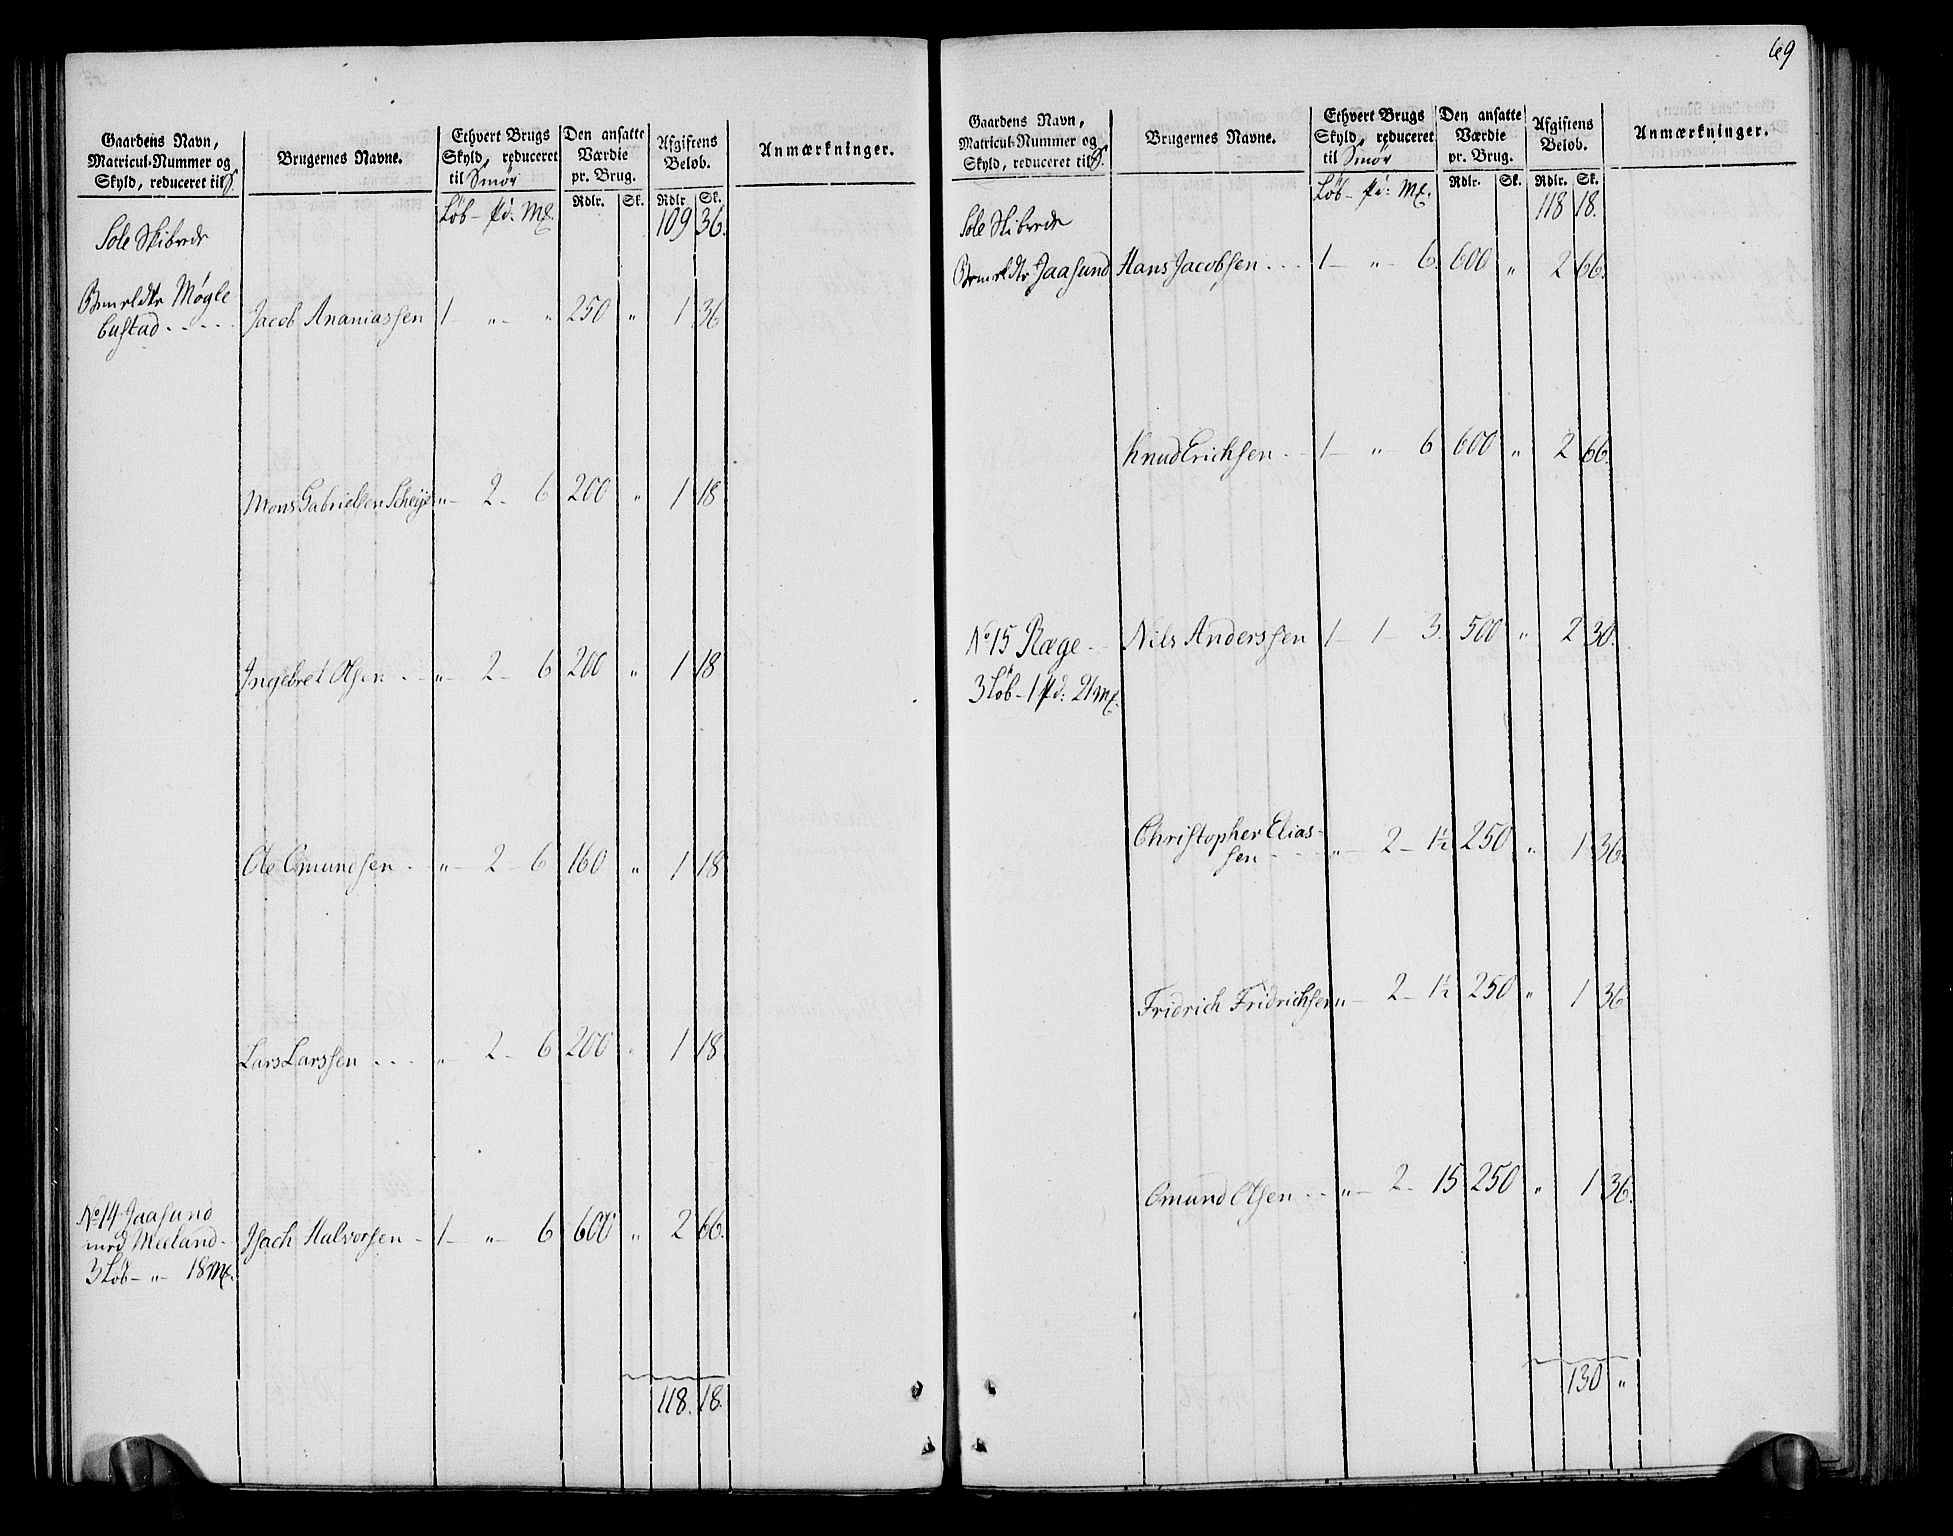 Gaardens Navn,
Matricul-Nummer og
Skyld, reduceret til
Brugernes Navne.
Ethvert Brugs
Skyld, reduceret
til Smør
Den ansatte
Værdie
pr. Brug.
Afgiftens
Beløb.
Anmærkninger.
Rdlr. Sk. Rdlr. Sk.
Løb - Pd: Mk. 109 36.
Sole Skibrede
Bemeldte Møgle
bustad - - - - Jacob Ananiassen 1 - „ - „ 250 „ 1 36
Mons Gabrielsen Scheije „ - 2 - 6 200 „ 1 18
Ingebret Olsen - - „ - 2 - 6 200 „ 1 18
Ole Omundsen - - „ - 2 - 6 160 „ 1 18
Lars Larssen - - - „ 2 - 6 200 „ 1 18
No 14 Jaasund
med Meeland - Isach Halvorsen - 1 - „ - 6 600 „ 2 66.
3 Løb - „ - 18 Mk.
118. 18.
69
Gaardens Navn,
Matricul-Nummer og
Skyld, reduceret til
Brugernes Navne.
Ethvert Brugs
Skyld, reduceret
til Smør
Den ansatte
Værdie
pr. Brug.
Afgiftens
Beløb.
Anmærkninger.
Rdlr. Sk. Rdlr. Sk.
Løb - Pd: Mk. 118 18.
Sole Skibrede
Bemeldte Jaasund Hans Jacobsen - - - 1 - „ - 6. 600 „ 2 66.
Knud Erichsen - - 1 - „ - 6 600 „ 2 66.
No 15 Ræge - - Nils Anderssen 1 - 1 - 3. 500 „ 2 30.
3 Løb - 1 Pd: 21 Mk.
Christopher Elias-
sen - - - „ - 2 - 1½ 250 „ 1 36.
Fridrich Fridrichsen „ - 2 - 1½ 250 „ 1 36
Omund Olsen - - „ - 2 - 15 250 „ 1 36.
130 „